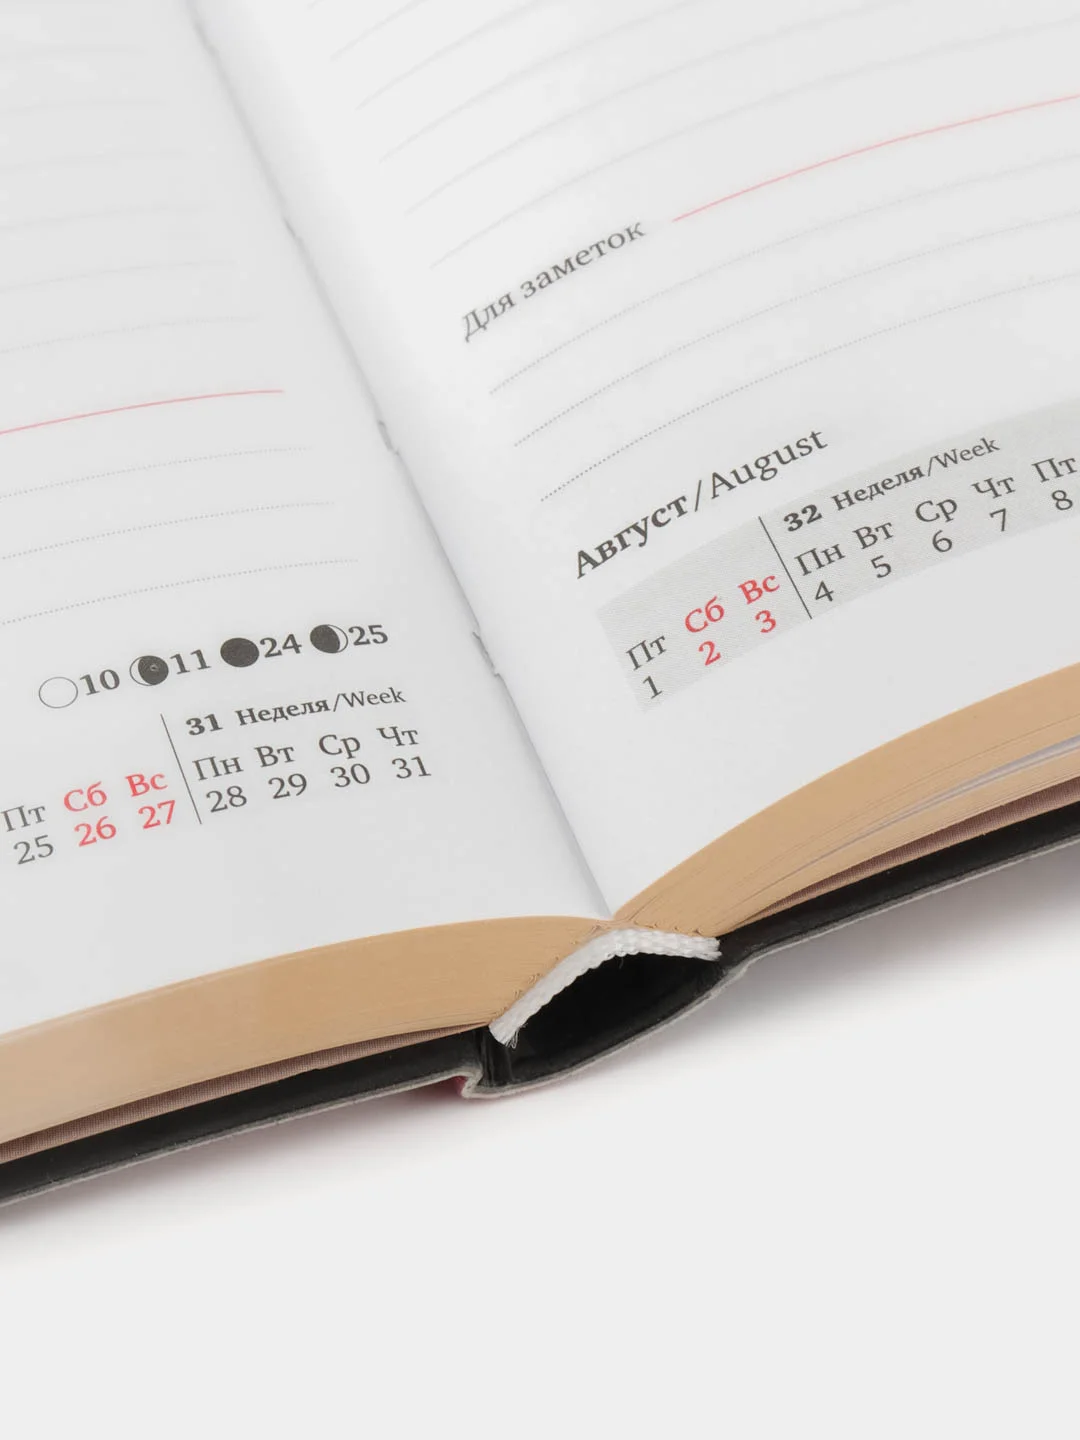 10 11 24 25
31 Неделя/Week
Пт Сб Вс Пн Вт Ср Чт
25 26 27 28 29 30 31
Для заметок
Август/August
32 Неделя/Week
Пт Сб Вс Пн Вт Ср Чт Пт
1 2 3 4 5 6 7 8